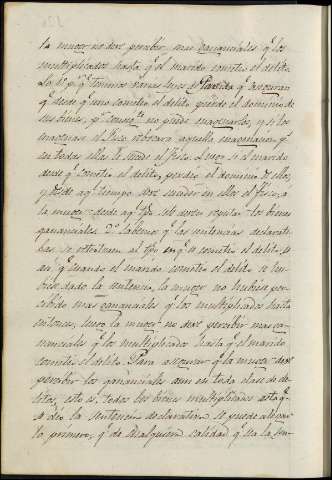 la muger no debe percibir mas gananciales q.e los
multiplicados hasta q.e el marido cometio el delito.
q.e tenemos varias leyes de Partida q.e aseguran
q.e desde q.e uno cometio el delito pierde el dominio de
sus bienes, no puede enagenarlos, y si los
enagenare el fisco aquella enagenacion, p.r
en todos ellos el fisco. Luego si el marido
desde q.e cometio el delito, pierde el dominio de ellos,
y desde aq.l tiempo debe suceder en ellos el fisco, a
la muger desde aq.l solo los bienes
gananciales. 2.o Sabemos q.e las sentencias declarato-
rias se retrotraen al en q.e se cometio el delito,
asi q.e cuando el marido cometio el delito se hu-
biese dado la sentencia, la muger no hubiera per-
cibido mas gananciales q.e los multiplicados hasta
entonces, luego la muger no debe percibir mas ga-
nanciales q.e los multiplicados hasta q.e el marido
cometio el delito. Para asegurar q.e la muger debe
percibir los gananciales aun en toda clase de de-
litos, esto es, todos los bienes multiplicados hasta q.e
se dio la sentencia declaratoria se puede alegar
lo primero, q.e de cualquiera calidad q.e sea la sen-